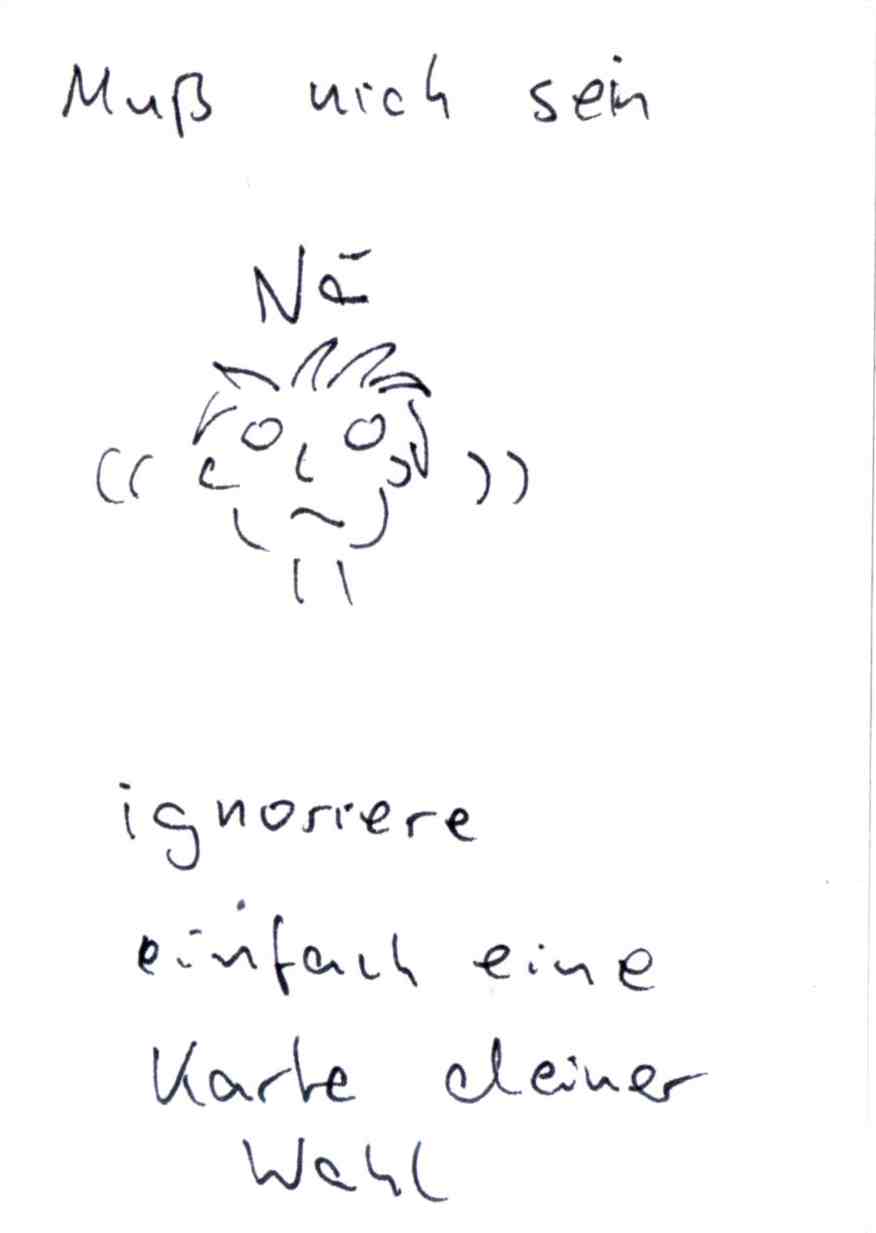 Muß nich sein
Nä
ignoriere
einfach eine
Karte deiner
Wahl